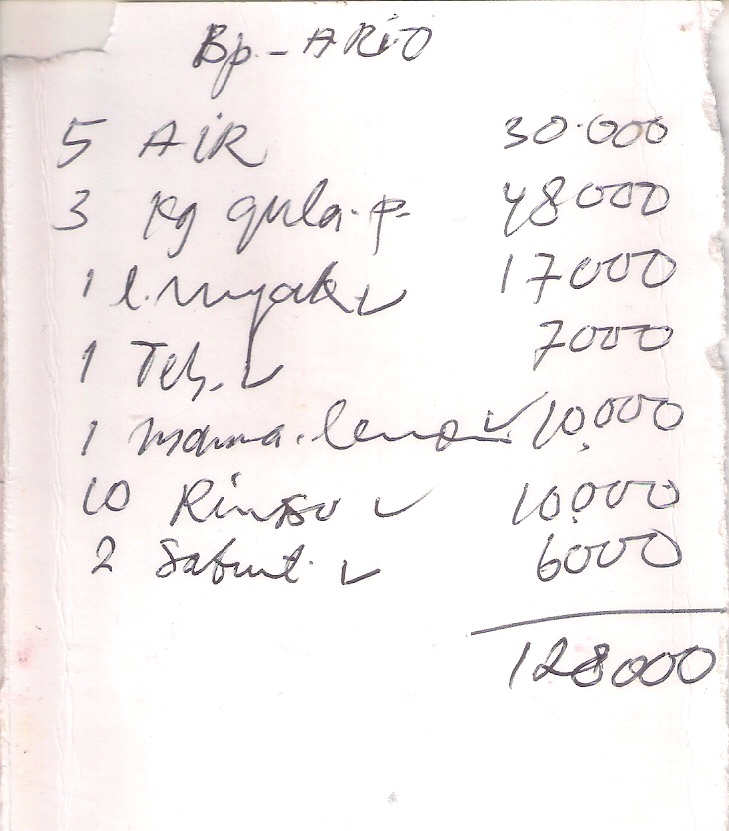 Bp - ARiO
5 AiR 30.000
3 Kg gula.p. 48000
1 l.mnyak 17000
1 Teh. 7000
1 mama.lemo 10.000
10 Rinso 10.000
2 Sabunt. 6000
128000